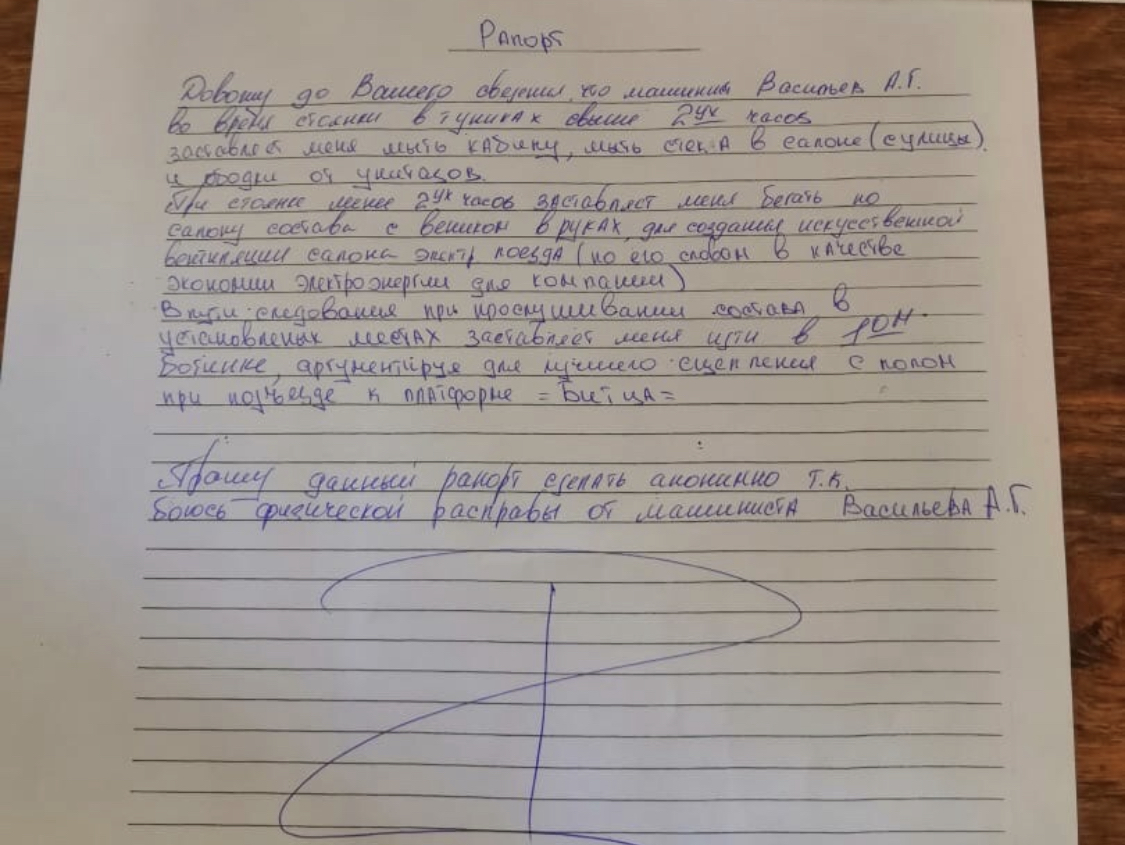 Рапорт
Довожу до Вашего сведения, что машинист Васильев А.Г.
во время стоянки в тупиках свыше 2ух часов
заставляет меня мыть кабину, мыть стекла в салоне (с улицы)
и ободки от унитазов.
При стоянке менее 2ух часов заставляет меня бегать по
салону состава с веником в руках, для создания искусственной
вентиляции салона электр поезда (по его словам в качестве
экономии электроэнергии для компании)
В пути следования при прослушивании состава в
установленых местах заставляет меня идти в 1ом
ботинке, аргументируя для лучшего сцепления с полом
при подъезде к платформе =Битца=
Прошу данный рапорт сделать анонимно т.к.
боюсь физической расправы от машиниста Васильева А.Г.